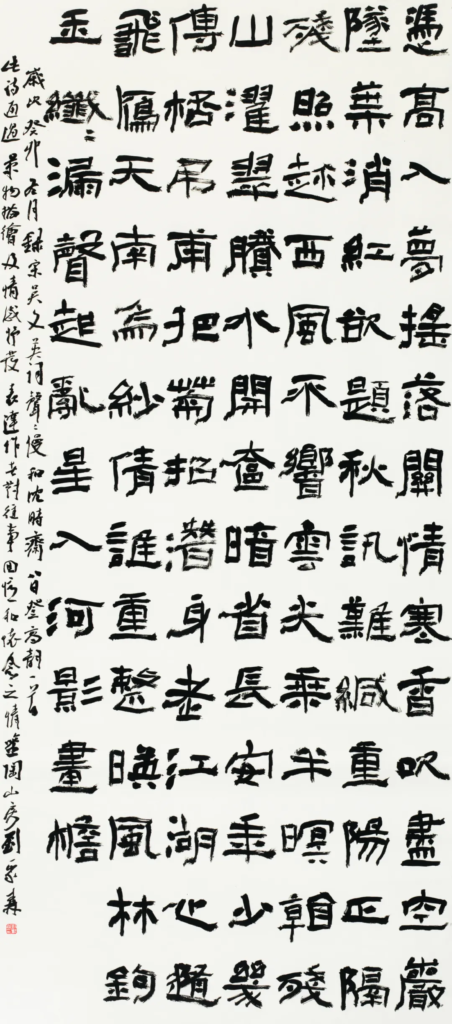 憑高入夢搖落關情寒香吹盡空巖
墜葉消紅欲題秋訊難緘重陽正隔
殘照趂西風不響雲尖乘半暝看殘
山濯翠賸水開奩暗省長安年少幾
傳桮吊甫把菊招潛身老江湖心隨
飛鴈天南烏紗倩誰重整暎風林鉤
玉纖〻漏聲起亂星入河影畫檐
歲次癸卯冬月錄宋吳文英詞聲〻慢和沈時齋八日登高韻一首
此詩通過景物描繪及情感抒發表達作者對往事回憶和懷念之情 陶山房劉